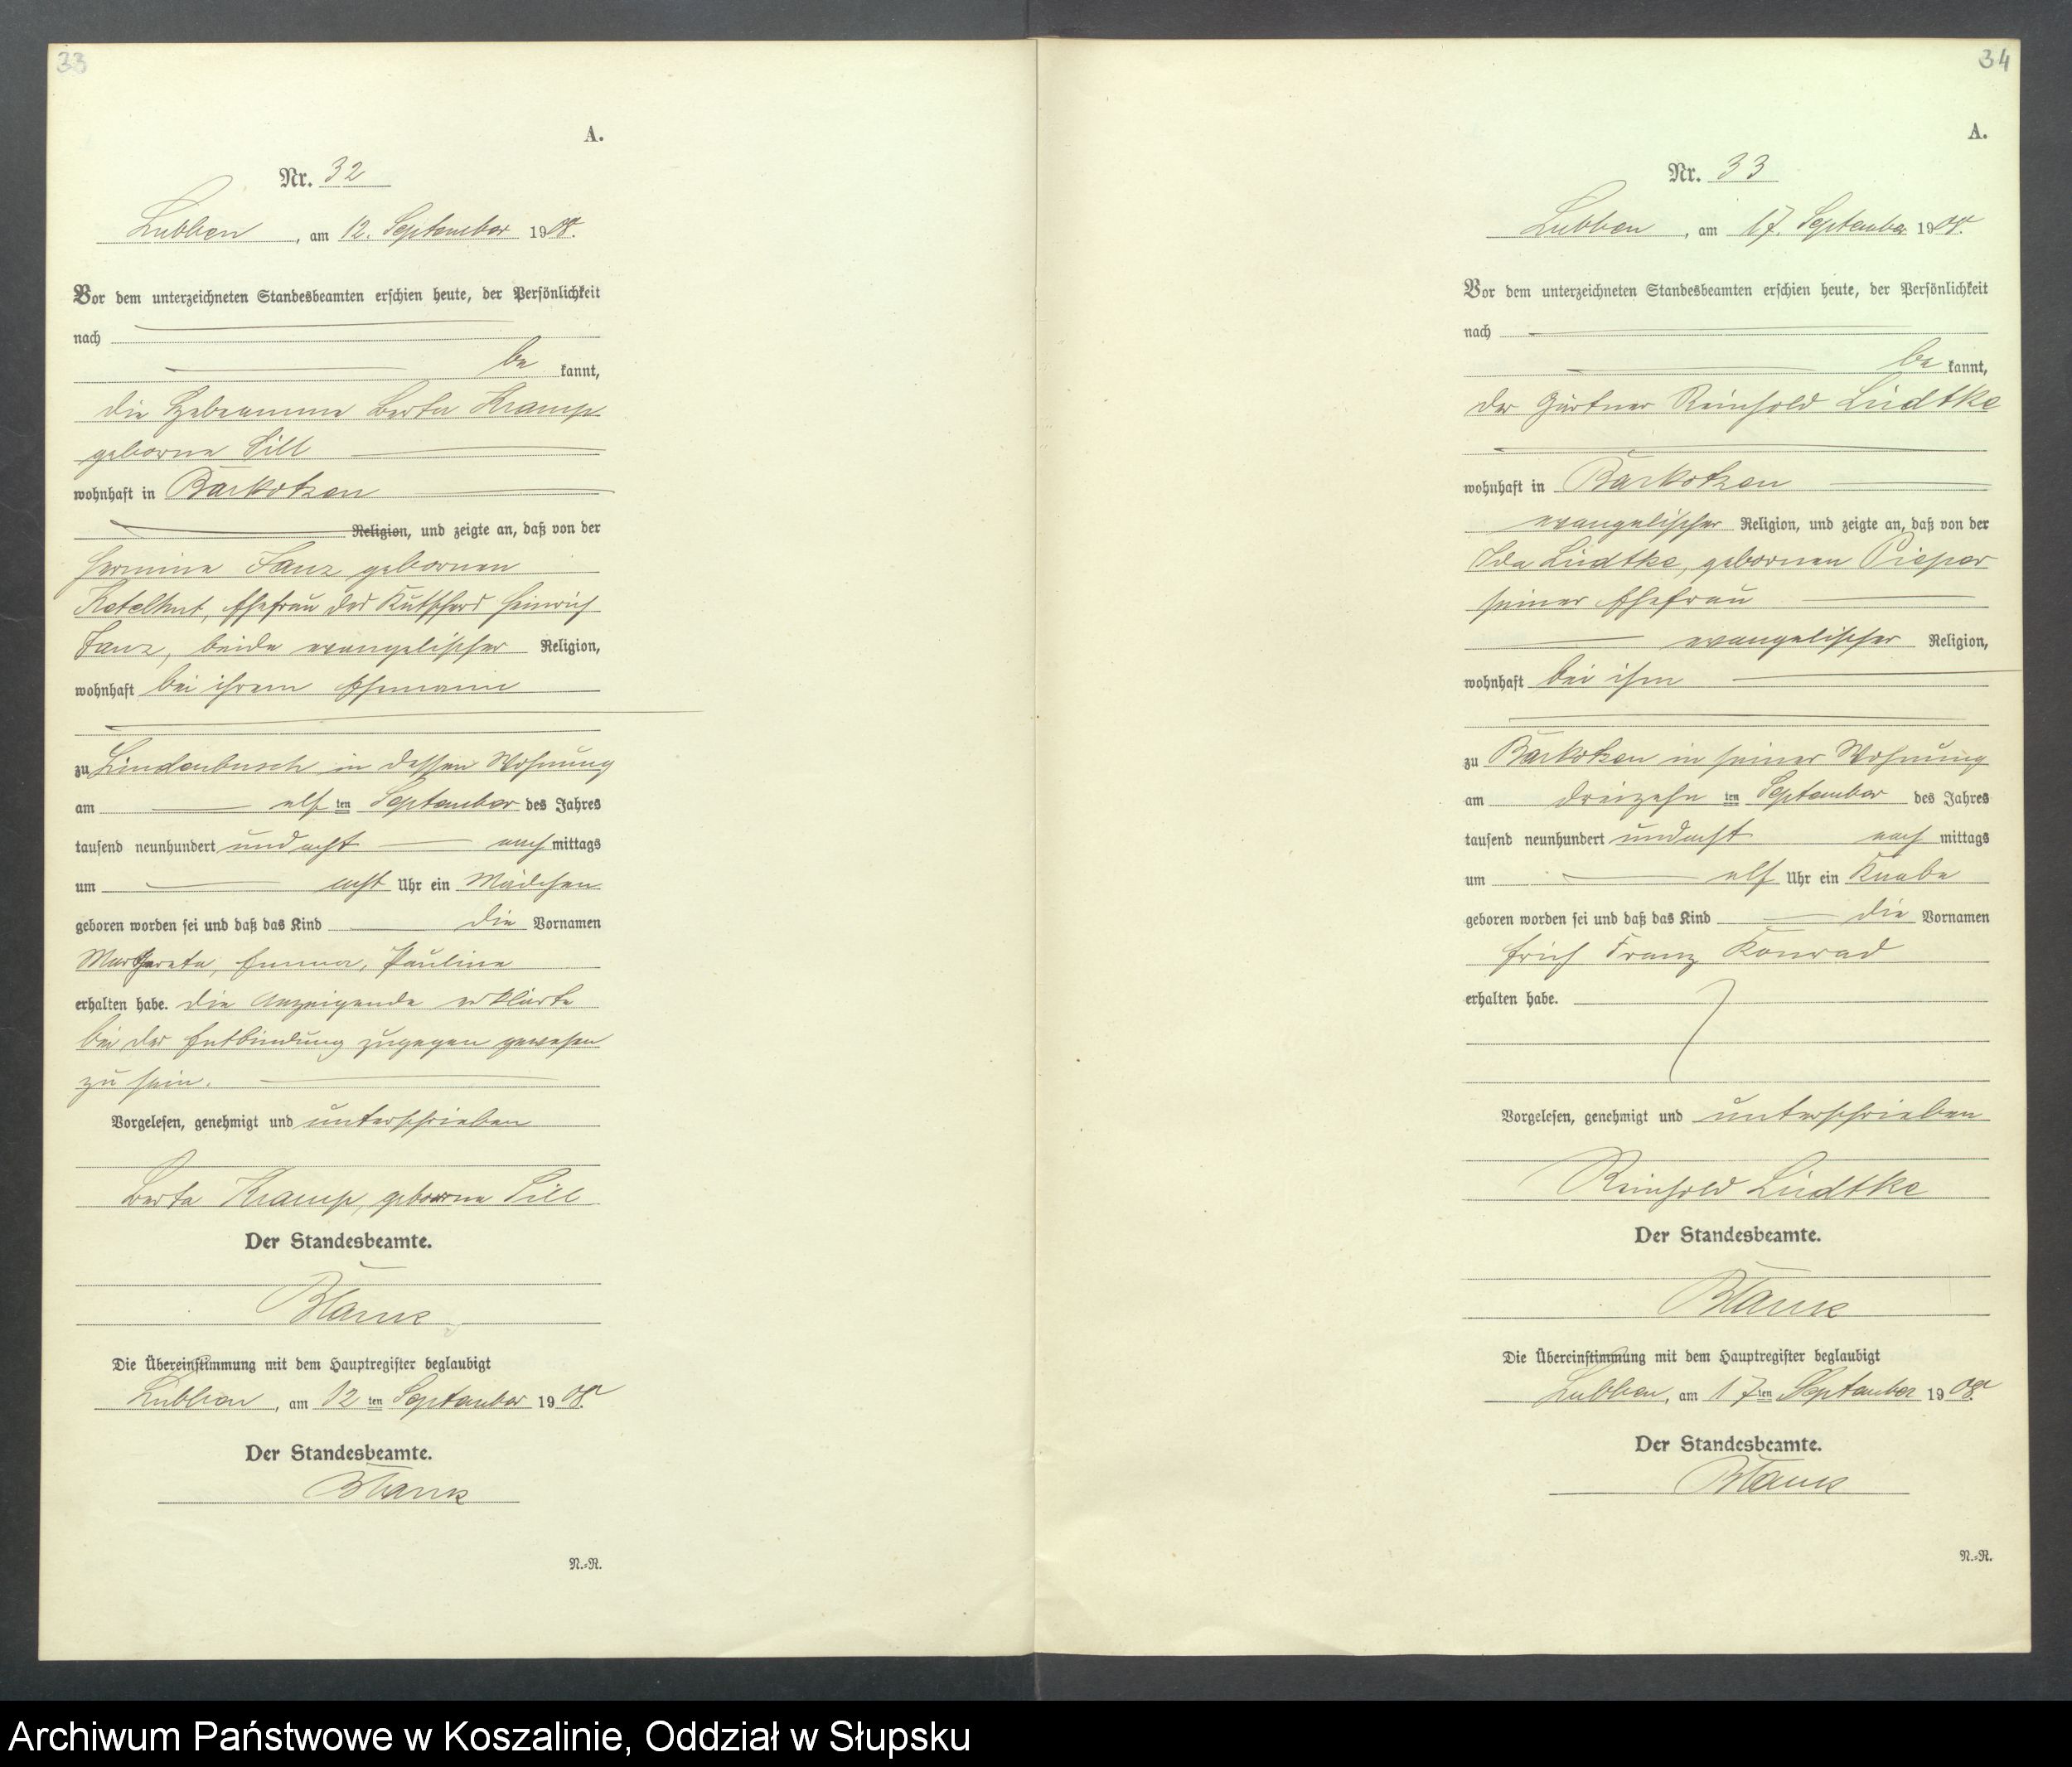 33
A.
Nr. 32
Lubben, am 12. September 1908.
Vor dem unterzeichneten Standesbeamten erschien heute, der Persönlichkeit
nach
be kannt,
die Hebeamme Berta Kramp
geborne Till
wohnhaft in Barkotzen
Religion, und zeigte an, daß von der
Hermine Janz gebornen
Ketelhut, Ehefrau des Kutschers Heinrich
Janz, beide evangelischer Religion,
wohnhaft bei ihrem Ehemann
zu Lindenbusch in dessen Wohnung
am elf ten September des Jahres
tausend neunhundert undacht nach mittags
um acht Uhr ein Mädchen
geboren worden sei und daß das Kind die Vornamen
Emma, Pauline
erhalten habe. Die Anzeigende erklärte
bei der Entbindung zugegen gewesen
zu sein.
Vorgelesen, genehmigt und unterschrieben
Berta Kramp, geborne Till
Der Standesbeamte.
Die Übereinstimmung mit dem Hauptregister beglaubigt
Lubben, am 12 ten September 1908.
Der Standesbeamte.
N.=R.
34
A.
Nr. 33
Lubben, am 17. September 1908.
Vor dem unterzeichneten Standesbeamten erschien heute, der Persönlichkeit
nach
be kannt,
der Gärtner Reinhold Lüdtke
wohnhaft in Barkotzen
evangelischer Religion, und zeigte an, daß von der
Ida Lüdtke, gebornen Pieper
seiner Ehefrau
evangelischer Religion,
wohnhaft bei ihm
zu Barkotzen in seiner Wohnung
am dreizehn ten September des Jahres
tausend neunhundert undacht nach mittags
um elf Uhr ein Knabe
geboren worden sei und daß das Kind die Vornamen
Erich Franz Konrad
erhalten habe.
Vorgelesen, genehmigt und unterschrieben
Reinhold Lüdtke
Der Standesbeamte.
Die Übereinstimmung mit dem Hauptregister beglaubigt
Lubben, am 17 ten September 1908.
Der Standesbeamte.
N.=R.
Archiwum Państwowe w Koszalinie, Oddział w Słupsku